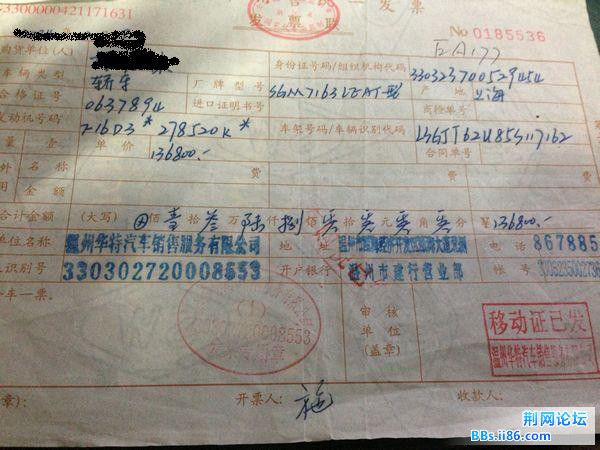 33000004211​71631
发 票 联
发票
No 0185536
巨A177
购货单位(人)
身份证号码/组织机构代码 330323700529454
车辆类型 轿车 厂牌型号 SGM7163LEAT-型 产地 上海
合格证号 0637894 进口证明书号 商检单号
发动机号码 F16D3*278520K* 车架号码/车辆识别代码
量 壹 单价 136800.- 合同单号
外 名称 费 费 费
用 金额
合计金额 (大写) 佰 壹 拾 叁 万 陆 仟 捌 佰 零 拾 零 元 零 角 零 分 136800.-
单位名称 温州华特汽车销售服务有限公司 地址 电话 867885
识别号 330302720008553 开户银行 温州市建行营业部 帐号
车一票。
(1)
审核
单位
(盖章)
移动证已发
温州华特汽车销售服务有限公司
章): 开票人: 施 收款人:
荆网论坛
BBs.ii86.com